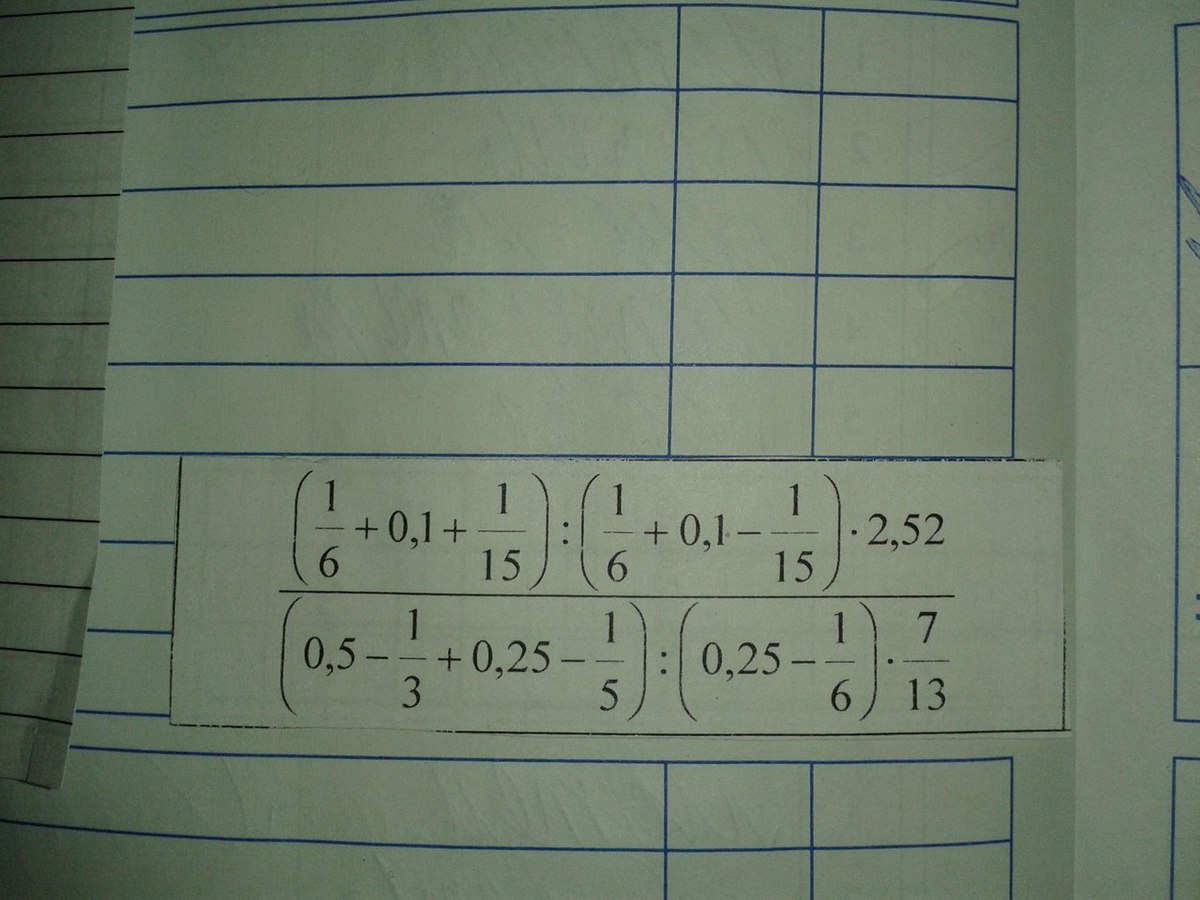 (1/6 + 0,1 + 1/15) : (1/6 + 0,1 − 1/15) · 2,52
(0,5 − 1/3 + 0,25 − 1/5) : (0,25 − 1/6) · 7/13